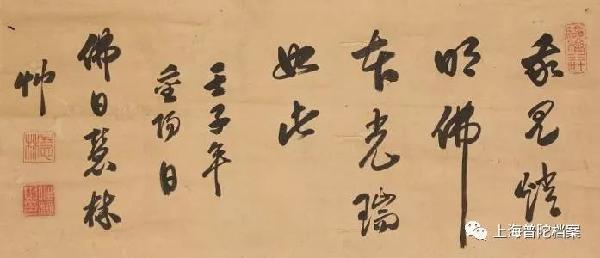 我見燈
明佛
本光瑞
如此
壬子年
重陽日
佛日慧林
艸
上海普陀档案